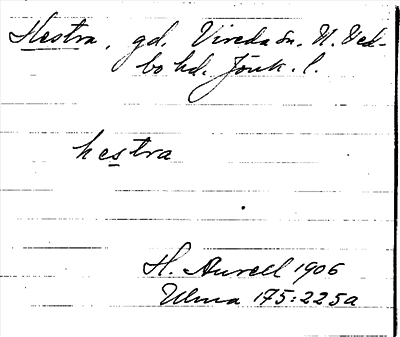 Hestra, gd. Vireda sn. N. Ved-
bo hd. Jönk. l.
hestra
H. Aurell 1906
Ulma 175:225a